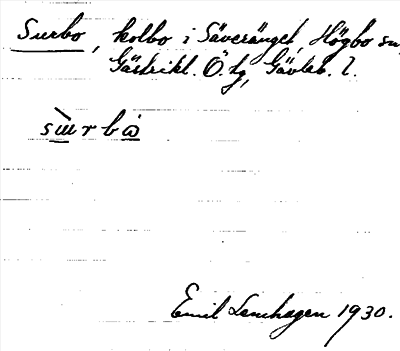 Surbo, kolbo i Säveränget, Högbo sn,
Gästrikl. Ö. tg, Gävleb. l.
sùrbò
Emil Lenhagen 1930.